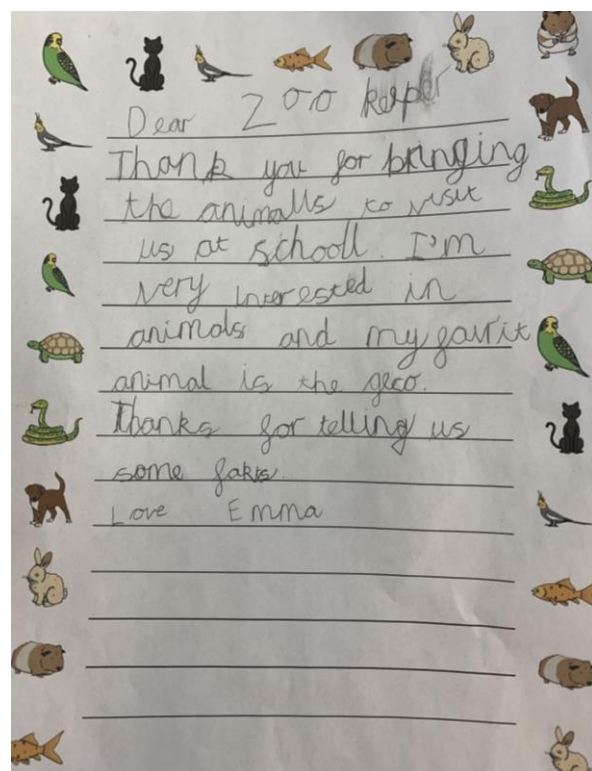 Dear Zoo keeper
Thank you for bringing
the animalls to visit
us at schooll. I'm
very interested in
animals and my favrit
animal is the geco.
Thanks for telling us
some fakts.
Love Emma